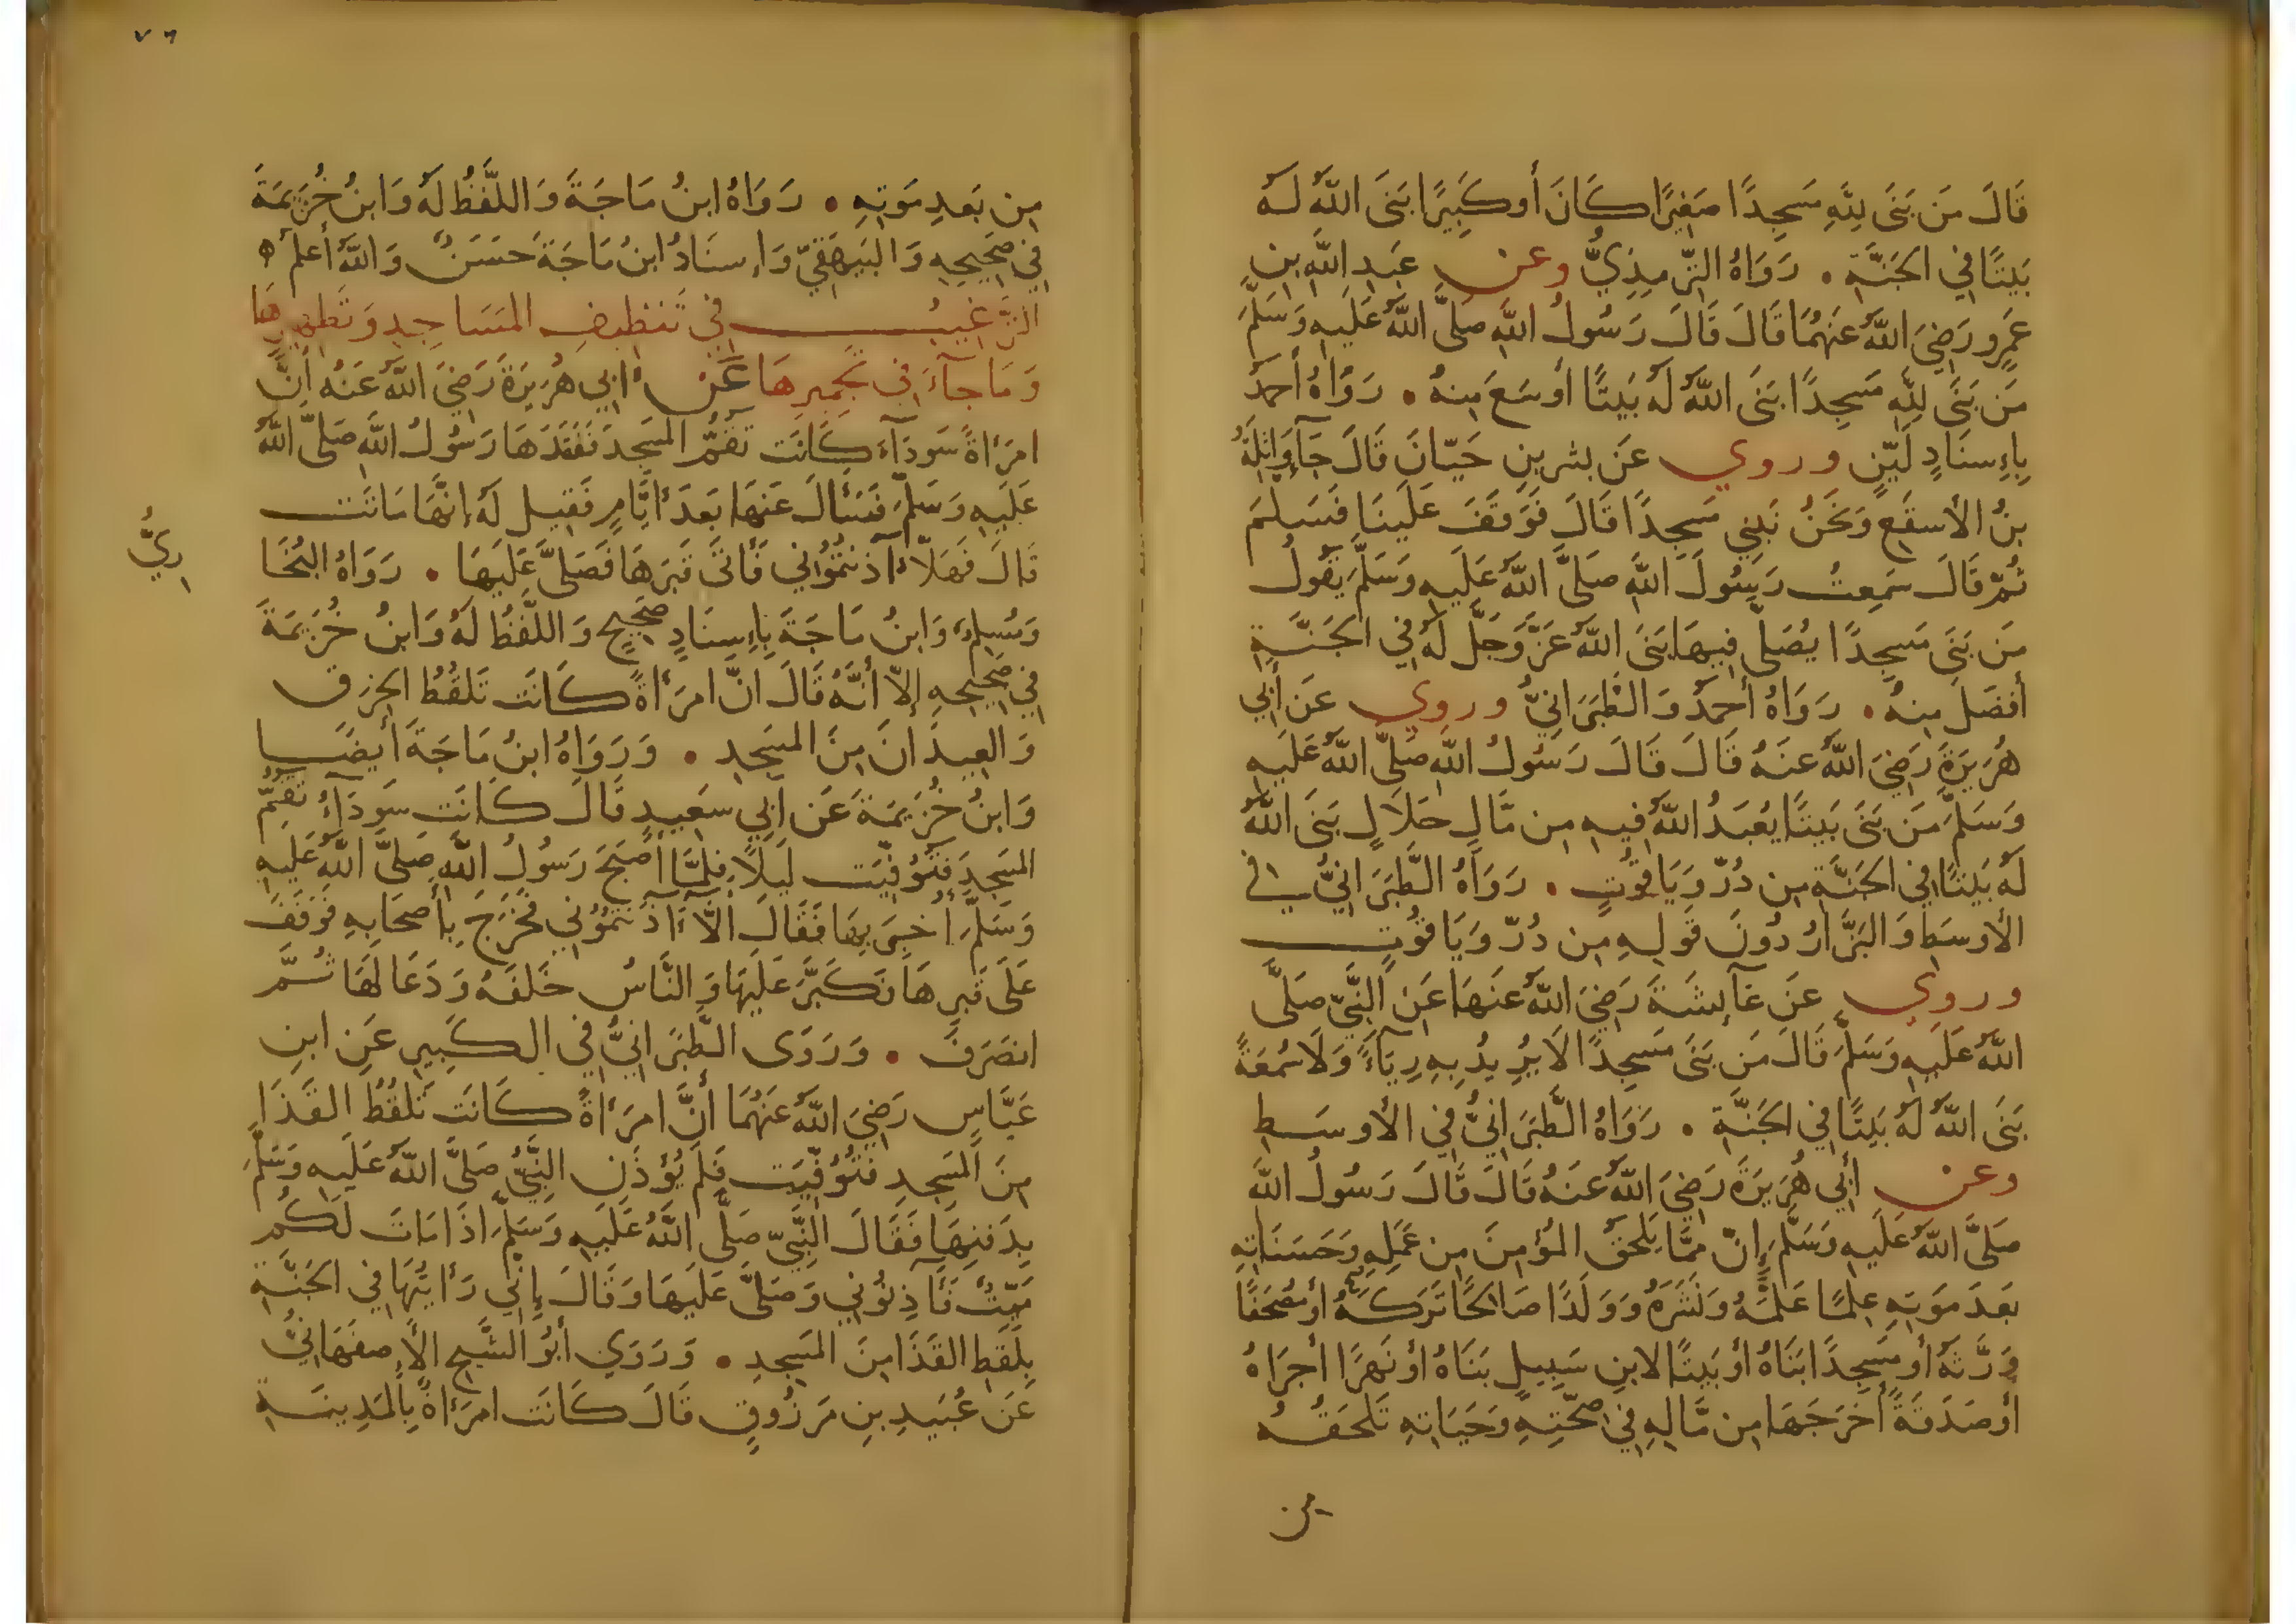 قَالَ مَن بَنَى لِلَّهِ مَسجِدًا صَغِيرًا كَانَ أَو كَبِيرًا بَنَى اللَّهُ لَهُ
بَيتًا فِي الجَنَّةِ . رَوَاهُ التِّرمِذِيُّ وعن عَبدِ اللَّهِ بنِ
عَمرٍو رَضِيَ اللَّهُ عَنهُمَا قَالَ قَالَ رَسُولُ اللَّهِ صَلَّى اللَّهُ عَلَيهِ وَسَلَّمَ
مَن بَنَى لِلَّهِ مَسجِدًا بَنَى اللَّهُ لَهُ بَيتًا أَوسَعَ مِنهُ . رَوَاهُ أَحمَدُ
بِإِسنَادٍ لَيِّنٍ وروي عَن بشرِ بنِ حَيَّانَ قَالَ جَآءَ وَاثِلَةُ
بنُ الأَسقَعِ وَنَحنُ نَبنِي مَسجِدًا قَالَ فَوَقَفَ عَلَينَا فَسَلَّمَ
ثُمَّ قَالَ سَمِعتُ رَسُولَ اللَّهِ صَلَّى اللَّهُ عَلَيهِ وَسَلَّمَ يَقُولُ
مَن بَنَى مَسجِدًا يُصَلَّى فِيهَا بَنَى اللَّهُ عَزَّ وَجَلَّ لَهُ فِي الجَنَّةِ
أَفضَلَ مِنهُ . رَوَاهُ أَحمَدُ وَالطَّبَرَانِيُّ وروي عَن أَبِي
هُرَيرَةَ رَضِيَ اللَّهُ عَنهُ قَالَ قَالَ رَسُولُ اللَّهِ صَلَّى اللَّهُ عَلَيهِ
وَسَلَّمَ مَن بَنَى بَيتًا يُعبَدُ اللَّهُ فِيهِ مِن مَّالٍ حَلَالٍ بَنَى اللَّهُ
لَهُ بَيتًا فِي الجَنَّةِ مِن دُرٍّ وَيَاقُوتٍ . رَوَاهُ الطَّبَرَانِيُّ فِي
الأَوسَطِ وَالبَزَّارُ دُونَ قَولِهِ مِن دُرٍّ وَيَاقُوتٍ
وروي عَن عَآئِشَةَ رَضِيَ اللَّهُ عَنهَا عَنِ النَّبِيِّ صَلَّى
اللَّهُ عَلَيهِ وَسَلَّمَ قَالَ مَن بَنَى مَسجِدًا لَا يُرِيدُ بِهِ رِيَآءً وَلَا سُمعَةً
بَنَى اللَّهُ لَهُ بَيتًا فِي الجَنَّةِ . رَوَاهُ الطَّبَرَانِيُّ فِي الأَوسَطِ
وعن أَبِي هُرَيرَةَ رَضِيَ اللَّهُ عَنهُ قَالَ قَالَ رَسُولُ اللَّهِ
صَلَّى اللَّهُ عَلَيهِ وَسَلَّمَ إِنَّ مِمَّا يَلحَقُ المُؤمِنَ مِن عَمَلِهِ وَحَسَنَاتِهِ
بَعدَ مَوتِهِ عِلمًا عَلَّمَهُ وَنَشَرَهُ وَوَلَدًا صَالِحًا تَرَكَهُ أَو مُصحَفًا
وَرَّثَهُ أَو مَسجِدًا بَنَاهُ أَو بَيتًا لِابنِ سَبِيلٍ بَنَاهُ أَو نَهرًا أَجرَاهُ
أَو صَدَقَةً أَخرَجَهَا مِن مَّالِهِ فِي صِحَّتِهِ وَحَيَاتِهِ تَلحَقُهُ
من
٧٦
مِن بَعدِ مَوتِهِ . رَوَاهُ ابنُ مَاجَةَ وَاللَّفظُ لَهُ وَابنُ خُزَيمَةَ
فِي صَحِيحِهِ وَالبَيهَقِيّ وَإِسنَادُ ابنُ مَاجَةَ حَسَنٌ وَاللَّهُ أَعلَمُ ه
التَّرغِيبُ فِي تَنظِيفِ المَسَاجِدِ وَتَطهِيرِهَا
وَمَا جَآءَ فِي تَجمِيرِهَا عَن أَبِي هُرَيرَةَ رَضِيَ اللَّهُ عَنهُ أَنَّ
امرَأَةً سَودَآءَ كَانَت تَقُمُّ المَسجِدَ فَفَقَدَهَا رَسُولُ اللَّهِ صَلَّى اللَّهُ
عَلَيهِ وَسَلَّمَ فَسَأَلَ عَنهَا بَعدَ أَيَّامٍ فَقِيلَ لَهُ إِنَّهَا مَاتَت
قَالَ فَهَلَّا آذَنتُمُونِي فَأَتَى قَبرَهَا فَصَلَّى عَلَيهَا . رَوَاهُ البُخَا
رِيُّ
وَمُسلِمٌ وَابنُ مَاجَةَ بِإِسنَادٍ صَحِيحٍ وَاللَّفظُ لَهُ وَابنُ خُزَيمَةَ
فِي صَحِيحِهِ إِلَّا أَنَّهُ قَالَ انَّ امرَأَةً كَانَت تَلقُطُ الخِرَقَ
وَالعِيدَانَ مِنَ المَسجِدِ . وَرَوَاهُ ابنُ مَاجَةَ أَيضًا
وَابنُ خُزَيمَةَ عَن أَبِي سَعِيدٍ قَالَ كَانَت سَودَآءُ تَقُمُّ
المَسجِدَ فَتُوُفِّيَت لَيلًا فَلَمَّا أَصبَحَ رَسُولُ اللَّهِ صَلَّى اللَّهُ عَلَيهِ
وَسَلَّمَ أُخبِرَ بِهَا فَقَالَ أَلَّا آذَنتُمُونِي فَخَرَجَ بِأَصحَابِهِ فَوَقَفَ
عَلَى قَبرِهَا فَكَبَّرَ عَلَيهَا وَالنَّاسُ خَلفَهُ وَدَعَا لَهَا ثُمَّ
انصَرَفَ . وَرَوَى الطَّبَرَانِيُّ فِي الكَبِيرِ عَنِ ابنِ
عَبَّاسٍ رَضِيَ اللَّهُ عَنهُمَا أَنَّ امرَأَةً كَانَت تَلقُطُ القَذَا
مِنَ المَسجِدِ فَتُوُفِّيَت فَلَم يُؤذَنِ النَّبِيُّ صَلَّى اللَّهُ عَلَيهِ وَسَلَّمَ
بِدَفنِهَا فَقَالَ النَّبِيّ صَلَّى اللَّهُ عَلَيهِ وَسَلَّمَ إِذَا مَاتَ لَكُم
مَيِّتٌ فَآذِنُونِي وَصَلَّى عَلَيهَا وَقَالَ إِنِّي رَأَيتُهَا فِي الجَنَّةِ
بِلَقطِ القَذَا مِنَ المَسجِدِ . وَرَوَى أَبُو الشَّيخِ الأَصفَهَانِيُّ
عَن عُبَيدِ بنِ مَرزُوقٍ قَالَ كَانَت امرَأَةٌ بِالمَدِينَةِ